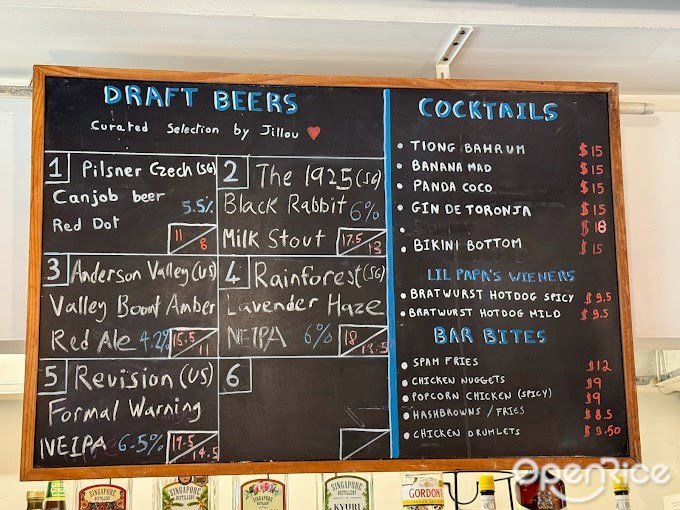 DRAFT BEERS
Curated Selection by Jillou
1 Pilsner Czech (SG)
Canjob beer 5.5%
Red Dot
11 8
2 The 1925 (SG)
Black Rabbit 6%
Milk Stout
17.5 13
3 Anderson Valley (US)
Valley Boont Amber
Red Ale 4.2%
15.5 11
4 Rainforest (SG)
Lavender Haze
NEIPA 6%
18 13.5
5 Revision (US)
Formal Warning
NEIPA 6.5%
19.5 14.5
6
COCKTAILS
• TIONG BAHRUM $15
• BANANA MAD $15
• PANDA COCO $15
• GIN DE TORONJA $15
• $18
• BIKINI BOTTOM $15
LIL PAPA'S WIENERS
• BRATWURST HOTDOG SPICY $9.5
• BRATWURST HOTDOG MILD $9.5
BAR BITES
• SPAM FRIES $12
• CHICKEN NUGGETS $9
• POPCORN CHICKEN (SPICY) $9
• HASHBROWNS / FRIES $8.5
• CHICKEN DRUMLETS $9.50
SINGAPORE
SINGAPORE
SINGAPORE
KYURI
GORDON'S
OpenRice